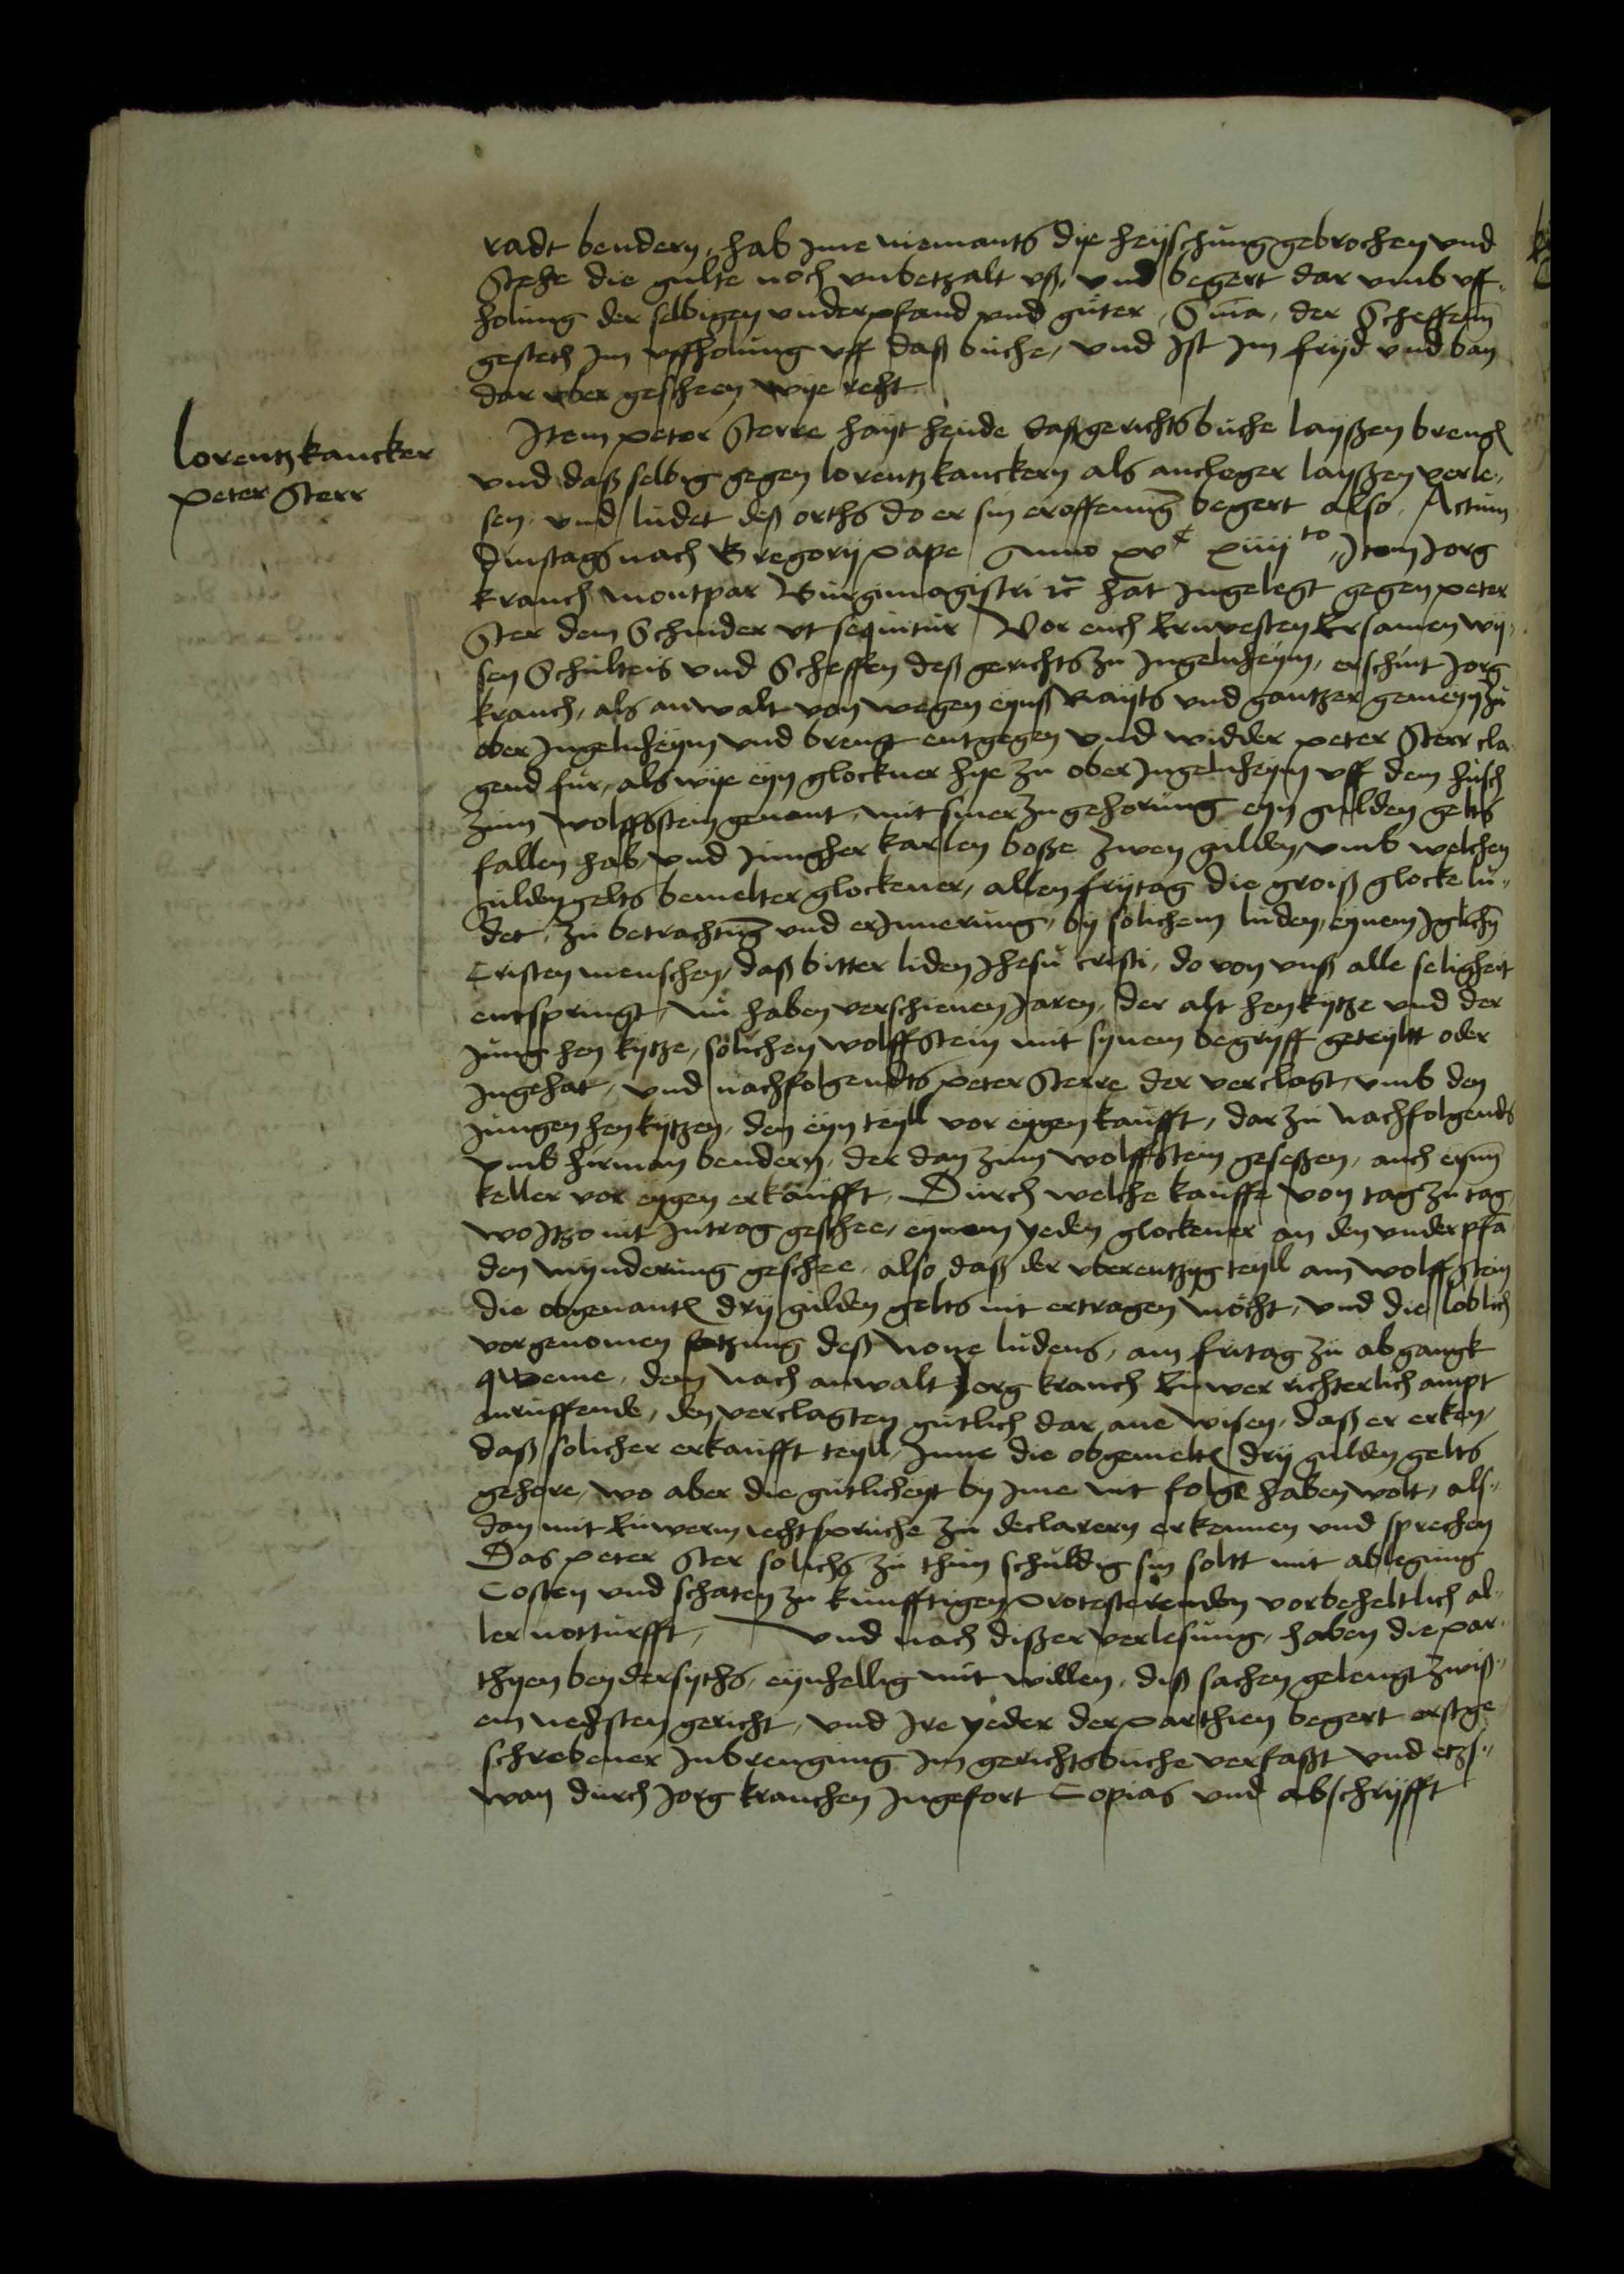 radt bendern, hab jme niemants dije heijschung gebrochen vnd
Stehe die gulte noch vnbetzalt vß, vnd begert dar vmb vff
holung der selbigen vnderpfand vnd guter, Sma, der Scheffenn
gesteth jm vffholung vff daß buche, vnd jst jm frijd vnd ban
dar vber gescheen wije reht
Lorentz kancker
Peter Sterr
Jtem peter Sterre hayt heude daß gerichtsbuche layßen breng
vnd daß selbig gegen lorentz kanckern als ancleger layßen verle,,
sen, vnd ludet deß orths do er sin eroffenung begert also, Actum
dinstags nach Gregorij pape Anno xvc xiiijto, Jtem Jorg
kranch montpar Burgimagistri rc hat jngelegt gegen peter
Ster dem Schnider vt sequitur Vor euch Ernvesten Ersamen wij,,
sen Schulteis vnd Scheffen deß gerichts zu jngelnheijm, erschint Jorg
kranch, als anwalt von wegen eijnß Rayts vnd gantzer gemeyn zu
ober jngelnheijm vnd brengt entgegen vnd widder peter Sterr cla
gend fur, als wije eijn glockner hije zu ober jngelnheijm vff dem husch
zum wolffstein genant, mit siner zugehorung eyn gulden gelts
fallen hab, vnd jungher karlen boße zwen gulden, vmb welchen
gulden gelts bemelter glockener, allen frijtag die groiß glocke lu,,
det, zu betrachtung vnd erjnnerung, by solichem luden, eijnem jglichn
Cristen menschen, daß bitter liden Jhesu cristi, do von vnß alle seligheit
entspringt, Nu haben verschienen Jaren, der alt hen kijtze vnd der
Jung hen kytze, solichen wolffstein mit synem begrijff geteyltt oder
jngehat, vnd nachfolgendts peter Sterre der verclagt, vmb den
jungen hen kytzen, den eijn teyll vor eygen kaufft, dar zu nachfolgends
vmb hirman bendern, der dan zum wolffstein geseßen, auch eynn
keller vor eygen erkaufft, Durch welche kauffe von tag zu tag
wo Jtzo nit jntrag geschee, eynem yeden glockener an den vnderpfa
den mynderung geschee, also daß der vberentzig teyll am wolffstein
die obgenant drij gulden gelts nit ertragen mocht, vnd die loblich
vorgenomen satzung deß None ludens, am fritag zu abgangk
qweme, dem nach anwalt Jorg kranch Euwer richterlich ampt
anruffende, den verclagten gutlich dar ane wisen, daß er erken,
daß solicher erkaufft teyll, jnne die obgemelt drij gulden gelts
gehore, wo aber die gutlicheyt by jme nit folge haben wolt, als,,
dan mit Euwerm rechtspruche zu declarern erkennen vnd sprechen
Das peter Ster solichs zu thun schuldig sin soltt mit ablegung
Costen vnd schaten zu kunfftigen Protesterenden vorbeheltlich al,,
ler notturfft, Vnd nach dißer verlesung, haben die par
thyen beydersyths, eijnhellig mit willen, diß sachen gelengt zwiß,,
em nehsten gericht, vnd jre yeder der parthien begert erstge
schrebener jnbrengung jm gerichtsbuche verfaßt vnd etzs,,
wan durch Jorg kranchen jngefort Copias vnd abschrijfft